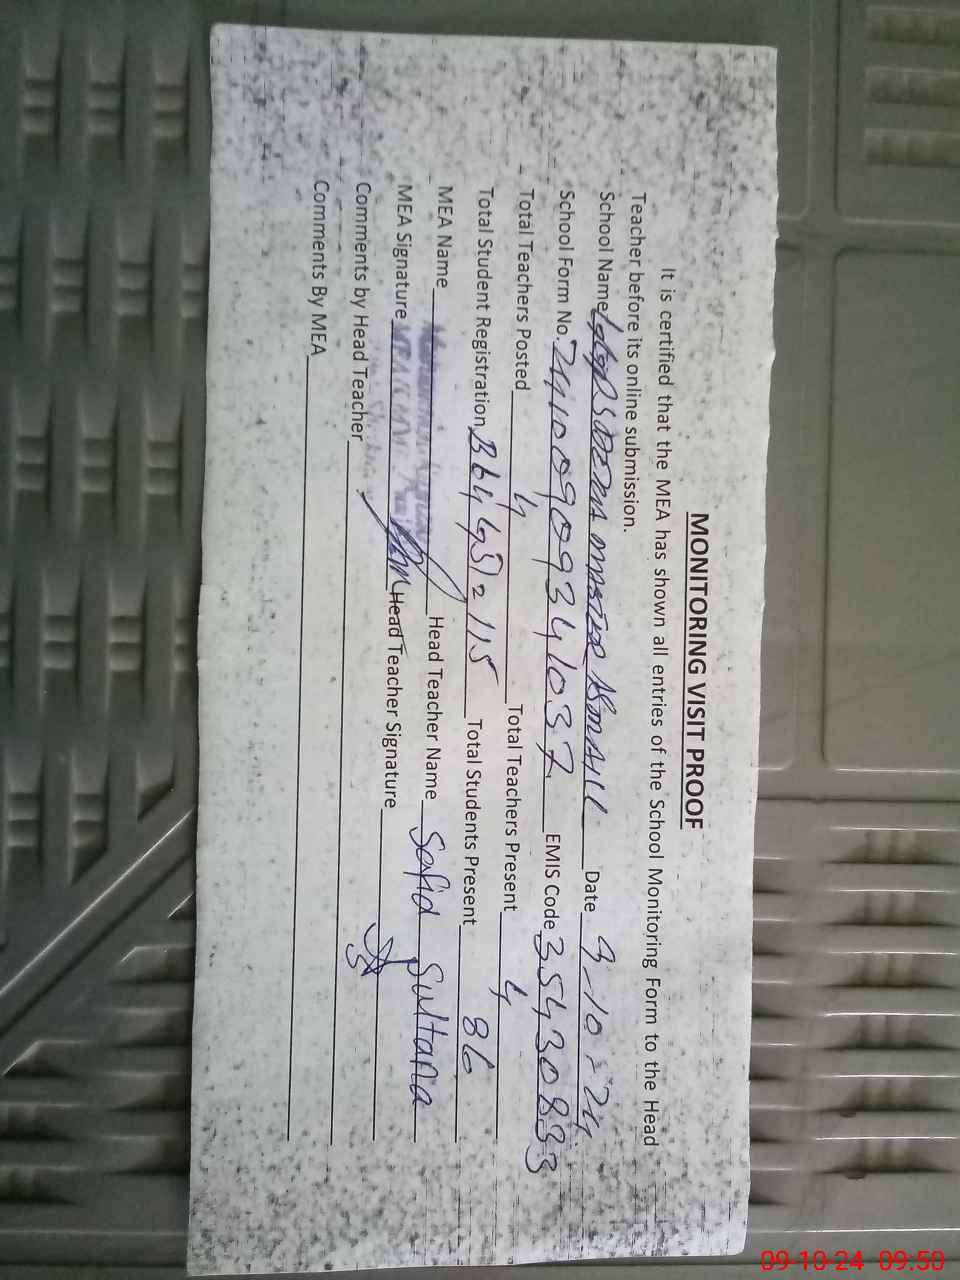 MONITORING VISIT PROOF
It is certified that the MEA has shown all entries of the School Monitoring Form to the Head
Teacher before its online submission.
School Name Date 9-10-24
School Form No. 24100909341037 EMIS Code 35430833
Total Teachers Posted 4 Total Teachers Present 4
Total Student Registration B 64 G 51 = 115 Total Students Present 86
MEA Name Head Teacher Name Sultana
MEA Signature Head Teacher Signature
Comments by Head Teacher
Comments By MEA
09-10-24 09:50